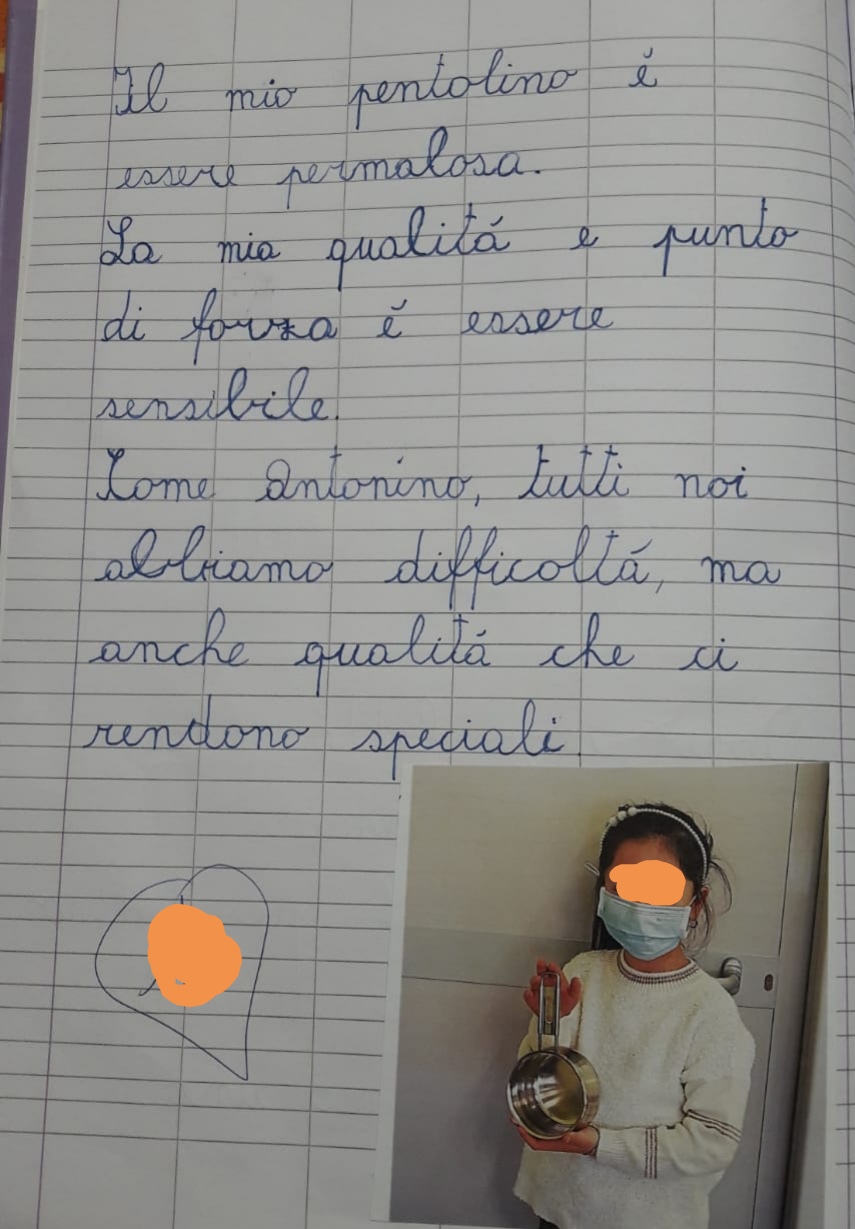 Il mio pentolino é
essere permalosa.
La mia qualitá e punto
di forza é essere
sensibile.
Come Antonino, tutti noi
abbiamo difficoltá, ma
anche qualitá che ci
rendono speciali